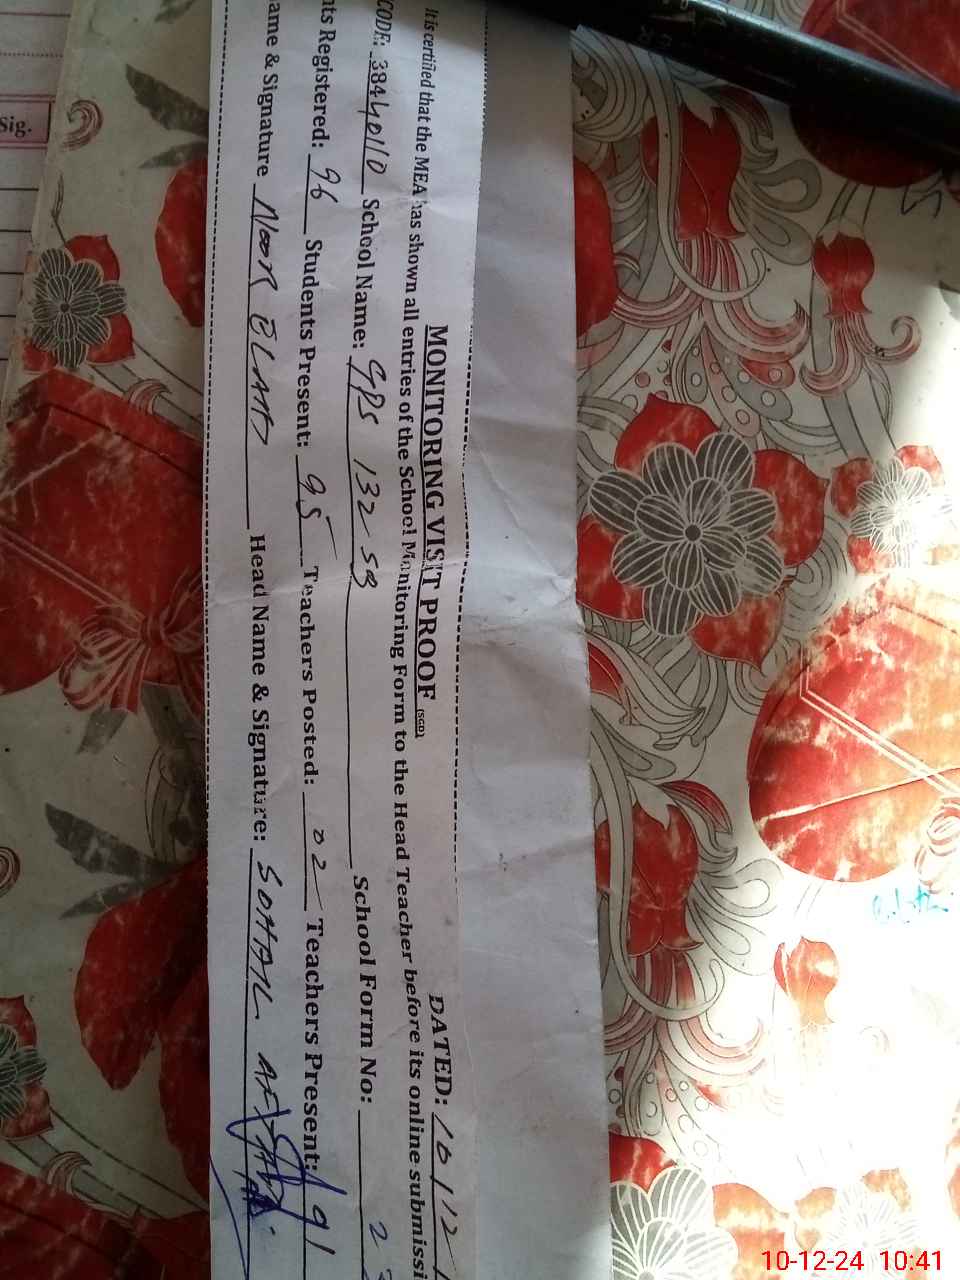 MONITORING VISIT PROOF (SGD) DATED: 10/12
It is certified that the MEA has shown all entries of the School Monitoring Form to the Head Teacher before its online submissi
CODE: 38440110 School Name: GPS 132 SB School Form No: 2
nts Registered: 96 Students Present: 95 Teachers Posted: 02 Teachers Present:
ame & Signature Noor Head Name & Signature: SOHAIL AFTAB
Sig.
10-12-24 10:41